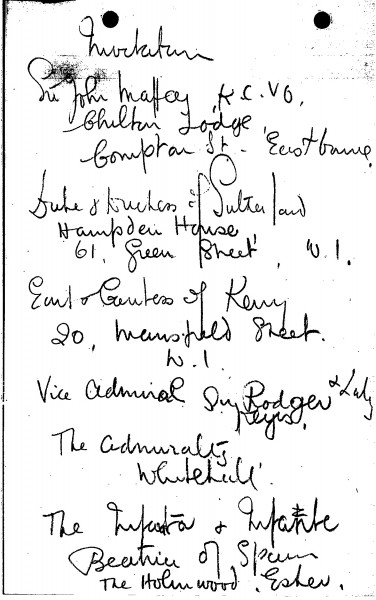 Invitation
Sir John Maffey, K.C.VO,
Chilton Lodge
Compton St. Eastbourne,
Duke & Duchess of Sutherland
Hampden House,
61, Green Street, W.1.
Earl & Countess of Kerry
20, Mansfield Street.
W.1.
Vice Admiral Sir Rodger & Lady
Keyes.
The Admiralty
Whitehall.
The Infanta & Infante
Beatrice of Spain
The Holmwood, Esher.